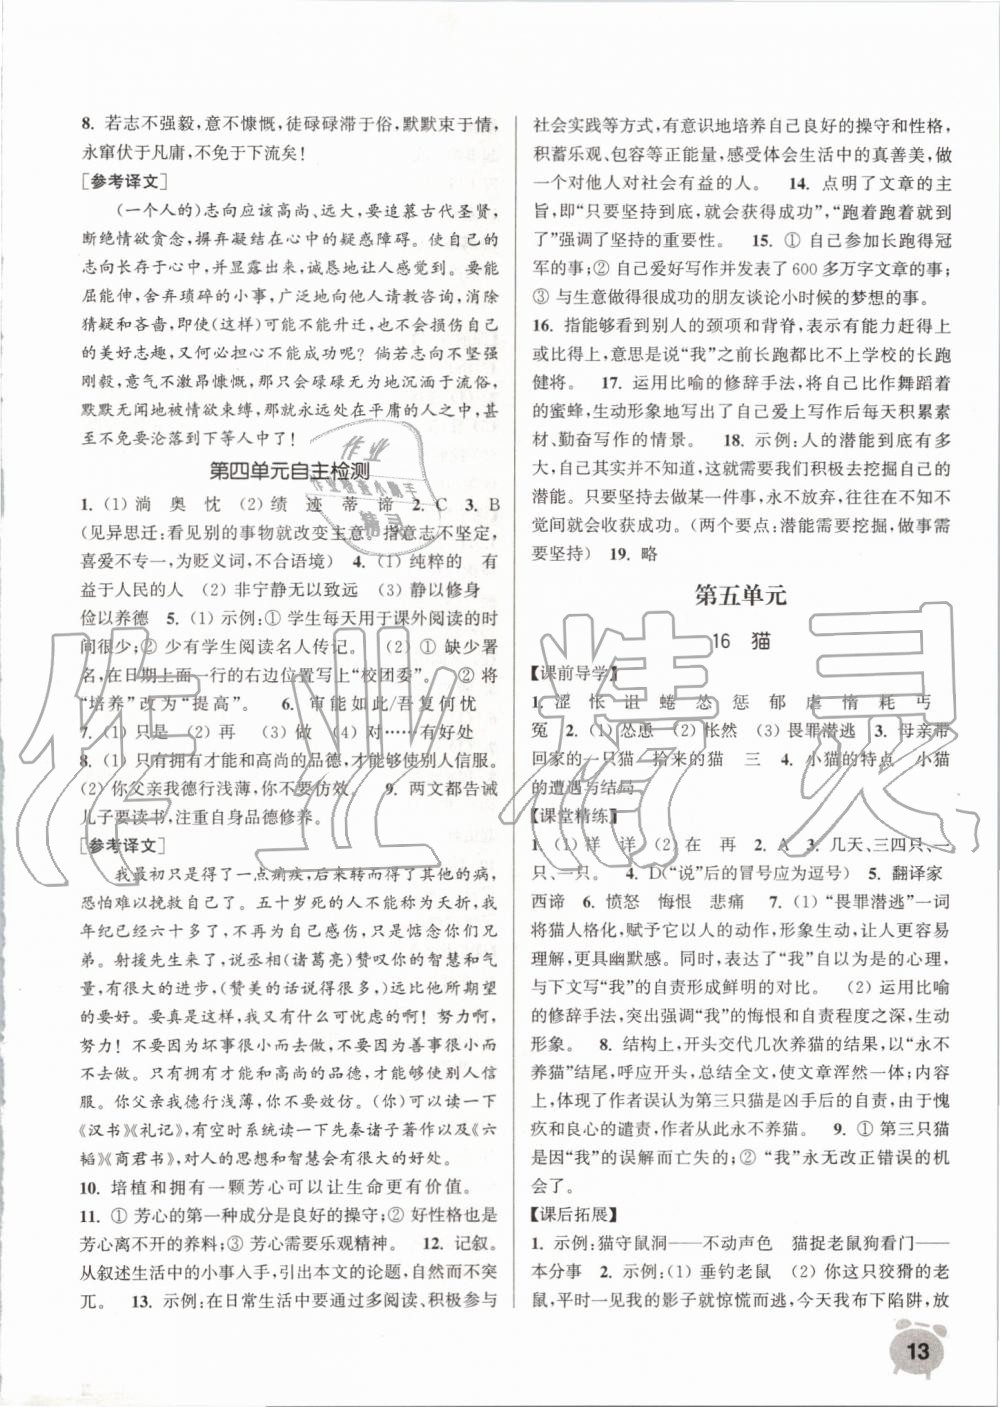 8. 若志不强毅,意不慷慨,徒碌碌滞于俗,默默束于情,
永窜伏于凡庸,不免于下流矣!
[参考译文]
(一个人的)志向应该高尚、远大,要追慕古代圣贤,
断绝情欲贪念,摒弃凝结在心中的疑惑障碍。使自己的
志向长存于心中,并显露出来,诚恳地让人感觉到。要能
屈能伸,舍弃琐碎的小事,广泛地向人请教咨询,消除
猜疑和吝啬,即使(这样)可能不能升迁,也不会损坏自己
的美好志趣,又何必担心不能成功呢? 倘若志向不坚强
刚毅,意气不激昂慷慨,只会碌碌无为地沉涵于流俗,
默默无闻地被情欲束缚,那就永远处在平庸的人之中,甚
至不免要沦落到下等人中了!
第四单元自主检测
1. (1) 淌 奥 忱 (2) 绩 迹 蒂 谛 2. C 3. B
(见异思迁:看见别的事物就改变主意。指意志不坚定,
喜爱不专一,为贬义词,不合语境) 4. (1) 纯粹的 有
益于人民的人 (2) 非宁静无以远致 (3) 静以修身
俭以养德 5. (1) 示例:① 学生每天用于课外阅读的时
间很少;② 少有学生阅读名人传记。 (2) ① 缺少署
名,在日期上面一行的右边位置写上“校团委”。 ② 将
“培养”改为“提高”。 6. 审能如此/吾复何忧
7. (1) 只是 (2) 再 (3) 做 (4) 对……有好处
8. (1) 只有拥有才能和高尚的品德,才能够使别人信服。
(2) 你父亲我德行浅薄,你不要仿效。 9. 两文都告诫
儿子要读书,注重自身品德修养。
[参考译文]
我最初只是得了一点疟疾,后来因为其他的病,
恐怕难以挽救自己。五十岁死的人不能称为夭折,我
年纪已经六十多了,不再有遗憾了,只是惦念你们兄
弟。射援先生来了,说丞相(诸葛亮)赞叹你的智慧和气
量,有很大的进步,(赞美的话说得很多,)远比他所期望
的要好。要真是这样,我又有什么可忧虑的啊! 努力啊,
努力! 不要因为坏事很小而去做,不要因为好事很小
而不去做。只有拥有才能和高尚的品德,才能够使别人信
服。你父亲我德行浅薄,你不要效仿。(你)可以读一下
《汉书》《礼记》,有空时系统读一下先秦诸子著作以及《六
韬》《商君书》,对人的思想和智慧会有很大的好处。
10. 培植和拥有一颗芳心可以让生命更有价值。
11. ① 芳心的第一种成分是良好的操守;② 好性格也是
芳心离不开的养料;③ 芳心需要乐观精神。 12. 记叙。
从叙述生活中的小事入手,引出本文的论题,自然而不突
兀。 13. 示例:在日常生活中要通过多阅读、积极参与
社会实践等方式,有意识地培养自己良好的操守和性格,
积蓄乐观、包容等正能量,感受体会生活中的真善美,做
一个对他人对社会有益的人。 14. 点明了文章的主
旨,即“只要坚持到底,就会获得成功”,“跑着跑着就到
了”强调了坚持的重要性。 15. ① 自己参加长跑得冠
军的事;② 自己爱好写作并发表了600多万字文章的事;
③ 与生意做得很成功的朋友谈论小时候的梦想的事。
16. 指能够看到别人的颈项和背脊,表示有能力赶得上
或比得上,意思是说“我”之前长跑都比不上学校的长跑
健将。 17. 运用比喻的修辞手法,将自己比作舞蹈着
的蜜蜂,生动形象地写出了自己爱上写作后每天积累素
材、勤奋写作的情景。 18. 示例:人的潜能是无限的,
在现实生活中,需要我们积极去挖掘开发自己和别人的
潜能。只要坚持去做某一件事,永不放弃,往往在不知不
觉间就会收获成功。(两个要点:潜能需要挖掘,做事需
要坚持) 19. 略
第五单元
16 猫
[课前导学]
1. 涩 怅 诅 蜷 怂 惩 郁 虐 惰 耗 丐
冤 2. (1) 怂恿 (2) 怅然 (3) 畏罪潜逃 3. 母亲带
回家的一只猫 拾来的猫 三 4. 小猫的特点 小猫
的遭遇与结局
[课堂精练]
1. (1) 样 详 (2) 在 再 2. A 3. 几天、三四只、一
只、一只。 4. D(“说”后的冒号应为逗号) 5. 翻译家
西谛 6. 愤怒 悔恨 悲痛 7. (1) “畏罪潜逃”一词
将猫人格化,赋予它以人的动作,形象生动,让人更容易
理解,更具幽默感。同时,表达了“我”自以为是的心理,
与下文写“我”的自责形成鲜明的对比。 (2) 运用比喻
的修辞手法,突出强调“我”的悔恨和自责程度之深,生动
形象。 8. 结构上,开头交代几次养猫的结果,以“永不
养猫”结尾,呼应开头,总结全文,使文章浑然一体;内容
上,因为作者误认为第三只猫是凶手后的自责,由于愧
疚和良心的谴责,作者从此永不养猫。 9. ① 第三只猫
是因“我”的误解而亡失的;② “我”永无改正错误的机
会了。
[课后拓展]
1. 示例:猫守鼠洞——不动声色 猫捉老鼠狗看门——
本分事 2. 示例:(1) 垂钓老鼠 (2) 你这只狡猾的老
鼠,平时一见我的影子就惊慌而逃,今天我布下陷阱,放
13
作业
作业检查小助手
精灵
作业精灵